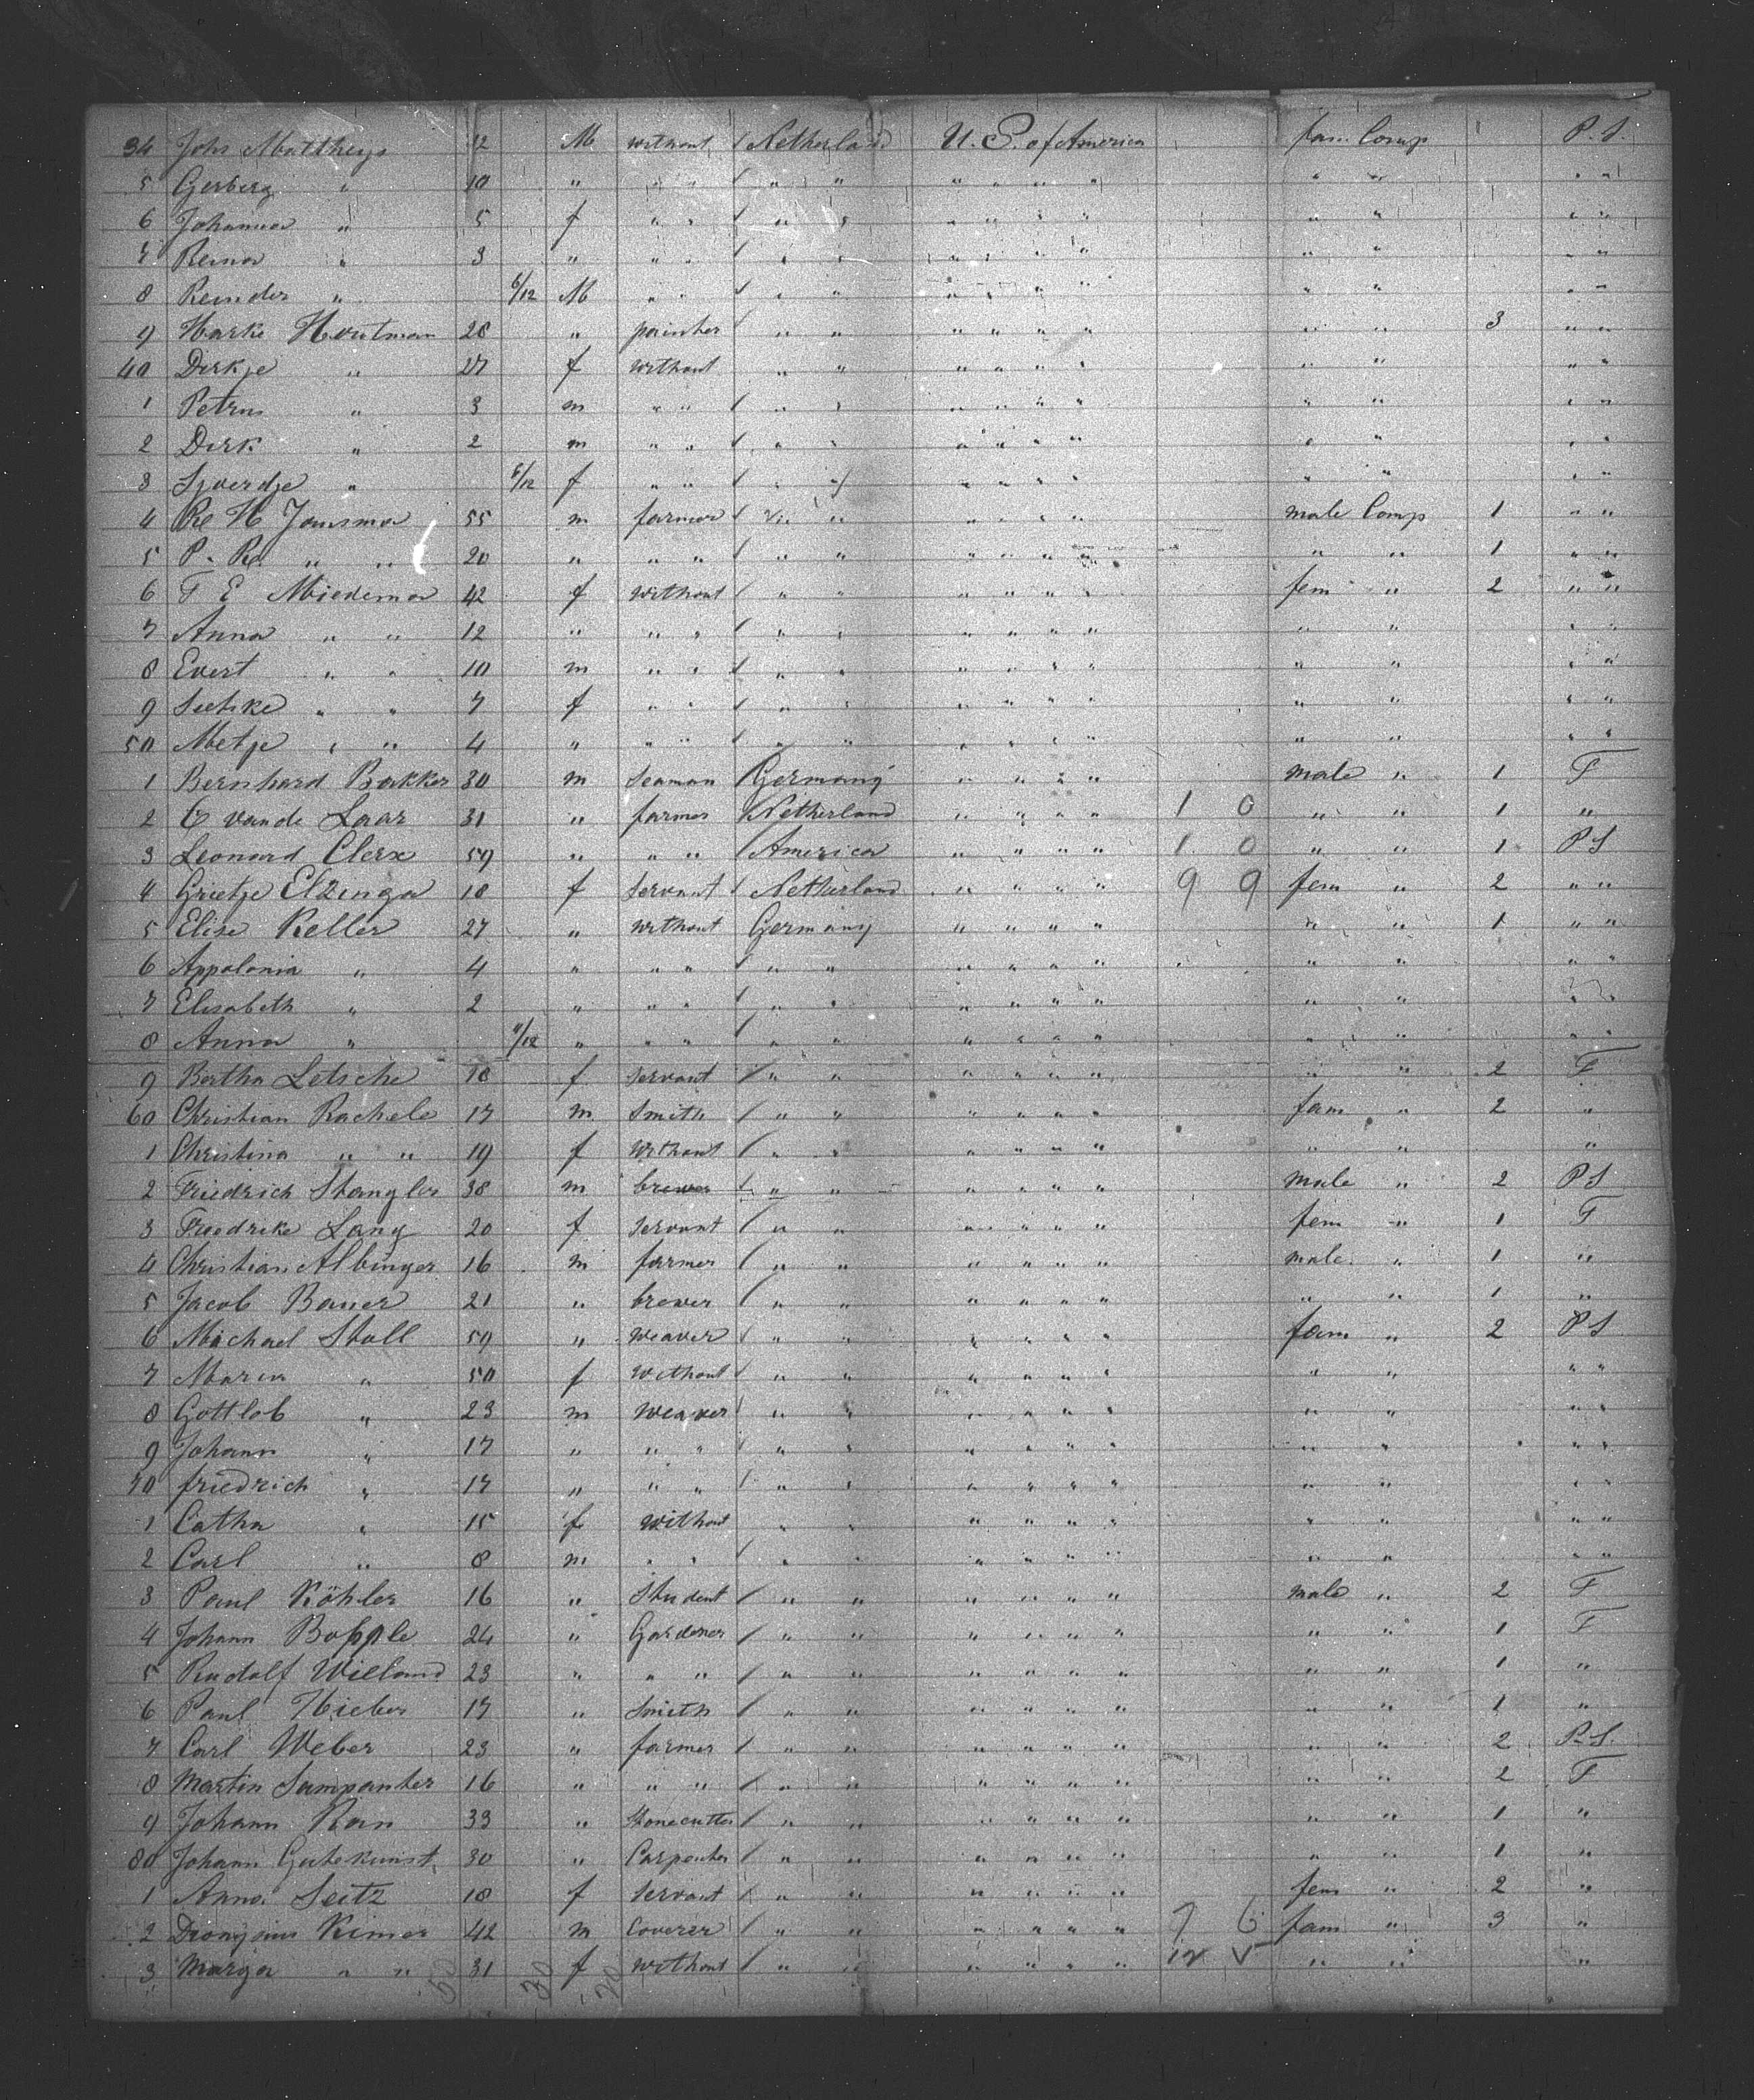 34 Johs Mattheys 12 M without Netherland U. S. of America fam. Comp P. S.
5 Gerberg " 10 " " " " " " " " " " " " " "
6 Johanna " 5 f " " " " " " " " " " " "
7 Reina " 3 " " " " " " " " " " " " "
8 Reinder " 6/12 M " " " " " " " " " " " "
9 Harke Houtman 28 " painter " " " " " " " " 3 " "
40 Dirkje " 27 f without " " " " " " " " " "
1 Petrus " 3 m " " " " " " " " " " " "
2 Dirk " 2 m " " " " " " " " " " " "
3 Sjoerdje " 5/12 f " " " " " " " " " " " "
4 Re H Jansma 55 m farmer " " " " " " male Comp 1 " "
5 P. Re. " " 20 " " " " " " " " " " " 1 " "
6 T E Miedema 42 f without " " " " " " fem " 2 " "
7 Anna " " 12 " " " " " " " " " " " " "
8 Evert " " 10 m " " " " " " " " " " " "
9 Sietske " " 7 f " " " " " " " " " " " "
50 Metje " " 4 " " " " " " " " " " " " "
1 Bernhard Bakker 30 m seaman Germany " " " " male " 1 F
2 C van de Laar 31 " farmer Netherland " " " " 1 0 " " 1 "
3 Leonard Clerx 59 " " " America " " " " 1 0 " " 1 P S
4 Grietje Elzinga 18 f servant Netherland " " " " 9 9 fem " 2 " "
5 Elise Keller 27 " without Germany " " " " " " 1 " "
6 Appolonia " 4 " " " " " " " " " " " " "
7 Elisabeth " 2 " " " " " " " " " " " " "
8 Anna " 11/12 " " " " " " " " " " " " "
9 Bertha Letsche 18 f servant " " " " " " " " 2 F
60 Christian Rachele 17 m Smith " " " " " " fam " 2 "
1 Christina " " 19 f without " " " " " " " " "
2 Friedrich Stangler 38 m brewer " " " " " " male " 2 P S
3 Friedrike Lang 20 f servant " " " " " " fem " 1 F
4 Christian Albinger 16 m farmer " " " " " " male " 1 "
5 Jacob Bauer 21 " brewer " " " " " " " " 1 "
6 Michael Stoll 59 " weaver " " " " " " fam " 2 P S
7 Maria " 50 f without " " " " " " " " " "
8 Gottlob " 23 m weaver " " " " " " " " " "
9 Johann " 17 " " " " " " " " " " " " "
70 friedrich " 17 " " " " " " " " " " " " "
1 Catha " 15 f without " " " " " " " " " "
2 Carl " 8 m " " " " " " " " " " " "
3 Paul Köhler 16 " Student " " " " " " male " 2 F
4 Johann Bopple 24 " Gardener " " " " " " " " 1 F
5 Rudolf Wieland 23 " " " " " " " " " " " 1 "
6 Paul Hieber 17 " Smith " " " " " " " " 1 "
7 Carl Weber 23 " farmer " " " " " " " " 2 P. S.
8 Martin Sampanter 16 " " " " " " " " " " " 2 F
9 Johann Rau 33 " Stonecutter " " " " " " " " 1 "
80 Johann Gutekunst 30 " Carpenter " " " " " " " " 1 "
1 Anna Seitz 18 f servant " " " " " " fem " 2 "
2 Dionysius Kimer 42 m coverer " " " " " " 7 6 fam " 3 "
3 Marga " " 31 f without " " " " " " 12 " " "